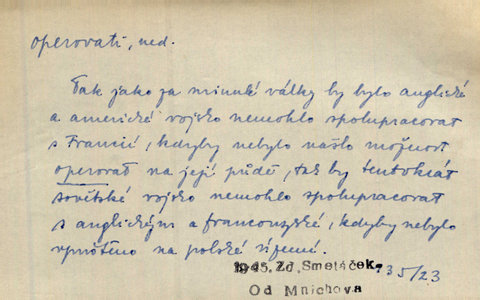 operovati, ned.
Tak jako za minulé války by bylo anglické
a americké vojsko nemohlo spolupracovat
s Francií, kdyby nebylo našlo možnost
operovat na její půdě, tak by tentokrát
sovětské vojsko nemohlo spolupracovat
s anglickým a francouzské, kdyby nebylo
vpuštěno na polské území.
1945. Zd. Smetáček, 235/23
Od Mnichova